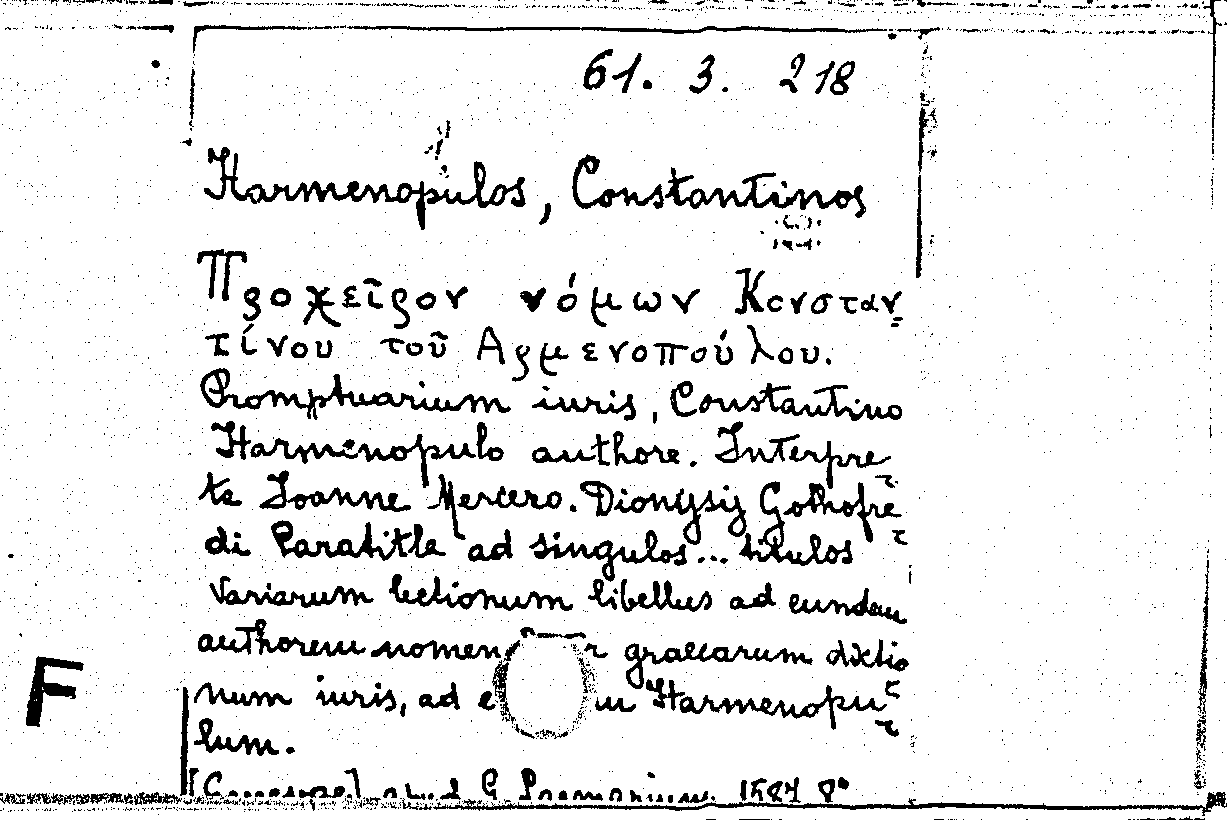 61. 3. 218
Harmenopulos, Constantinos
Προχεῖρον νόμων Κονσταν=
τίνου τοῦ Αρμενοπούλου.
Promptuarium iuris, Constantino
Harmenopulo authore. Interpre=
te Joanne Mercero. Dionysij Gothofre=
di Paratitla ad singulos... titulos
Variarum lectionum libellus ad eundem
authorem graecarum dictio
num iuris, ad Harmenopu=
lum.
G. 1587 8°
F